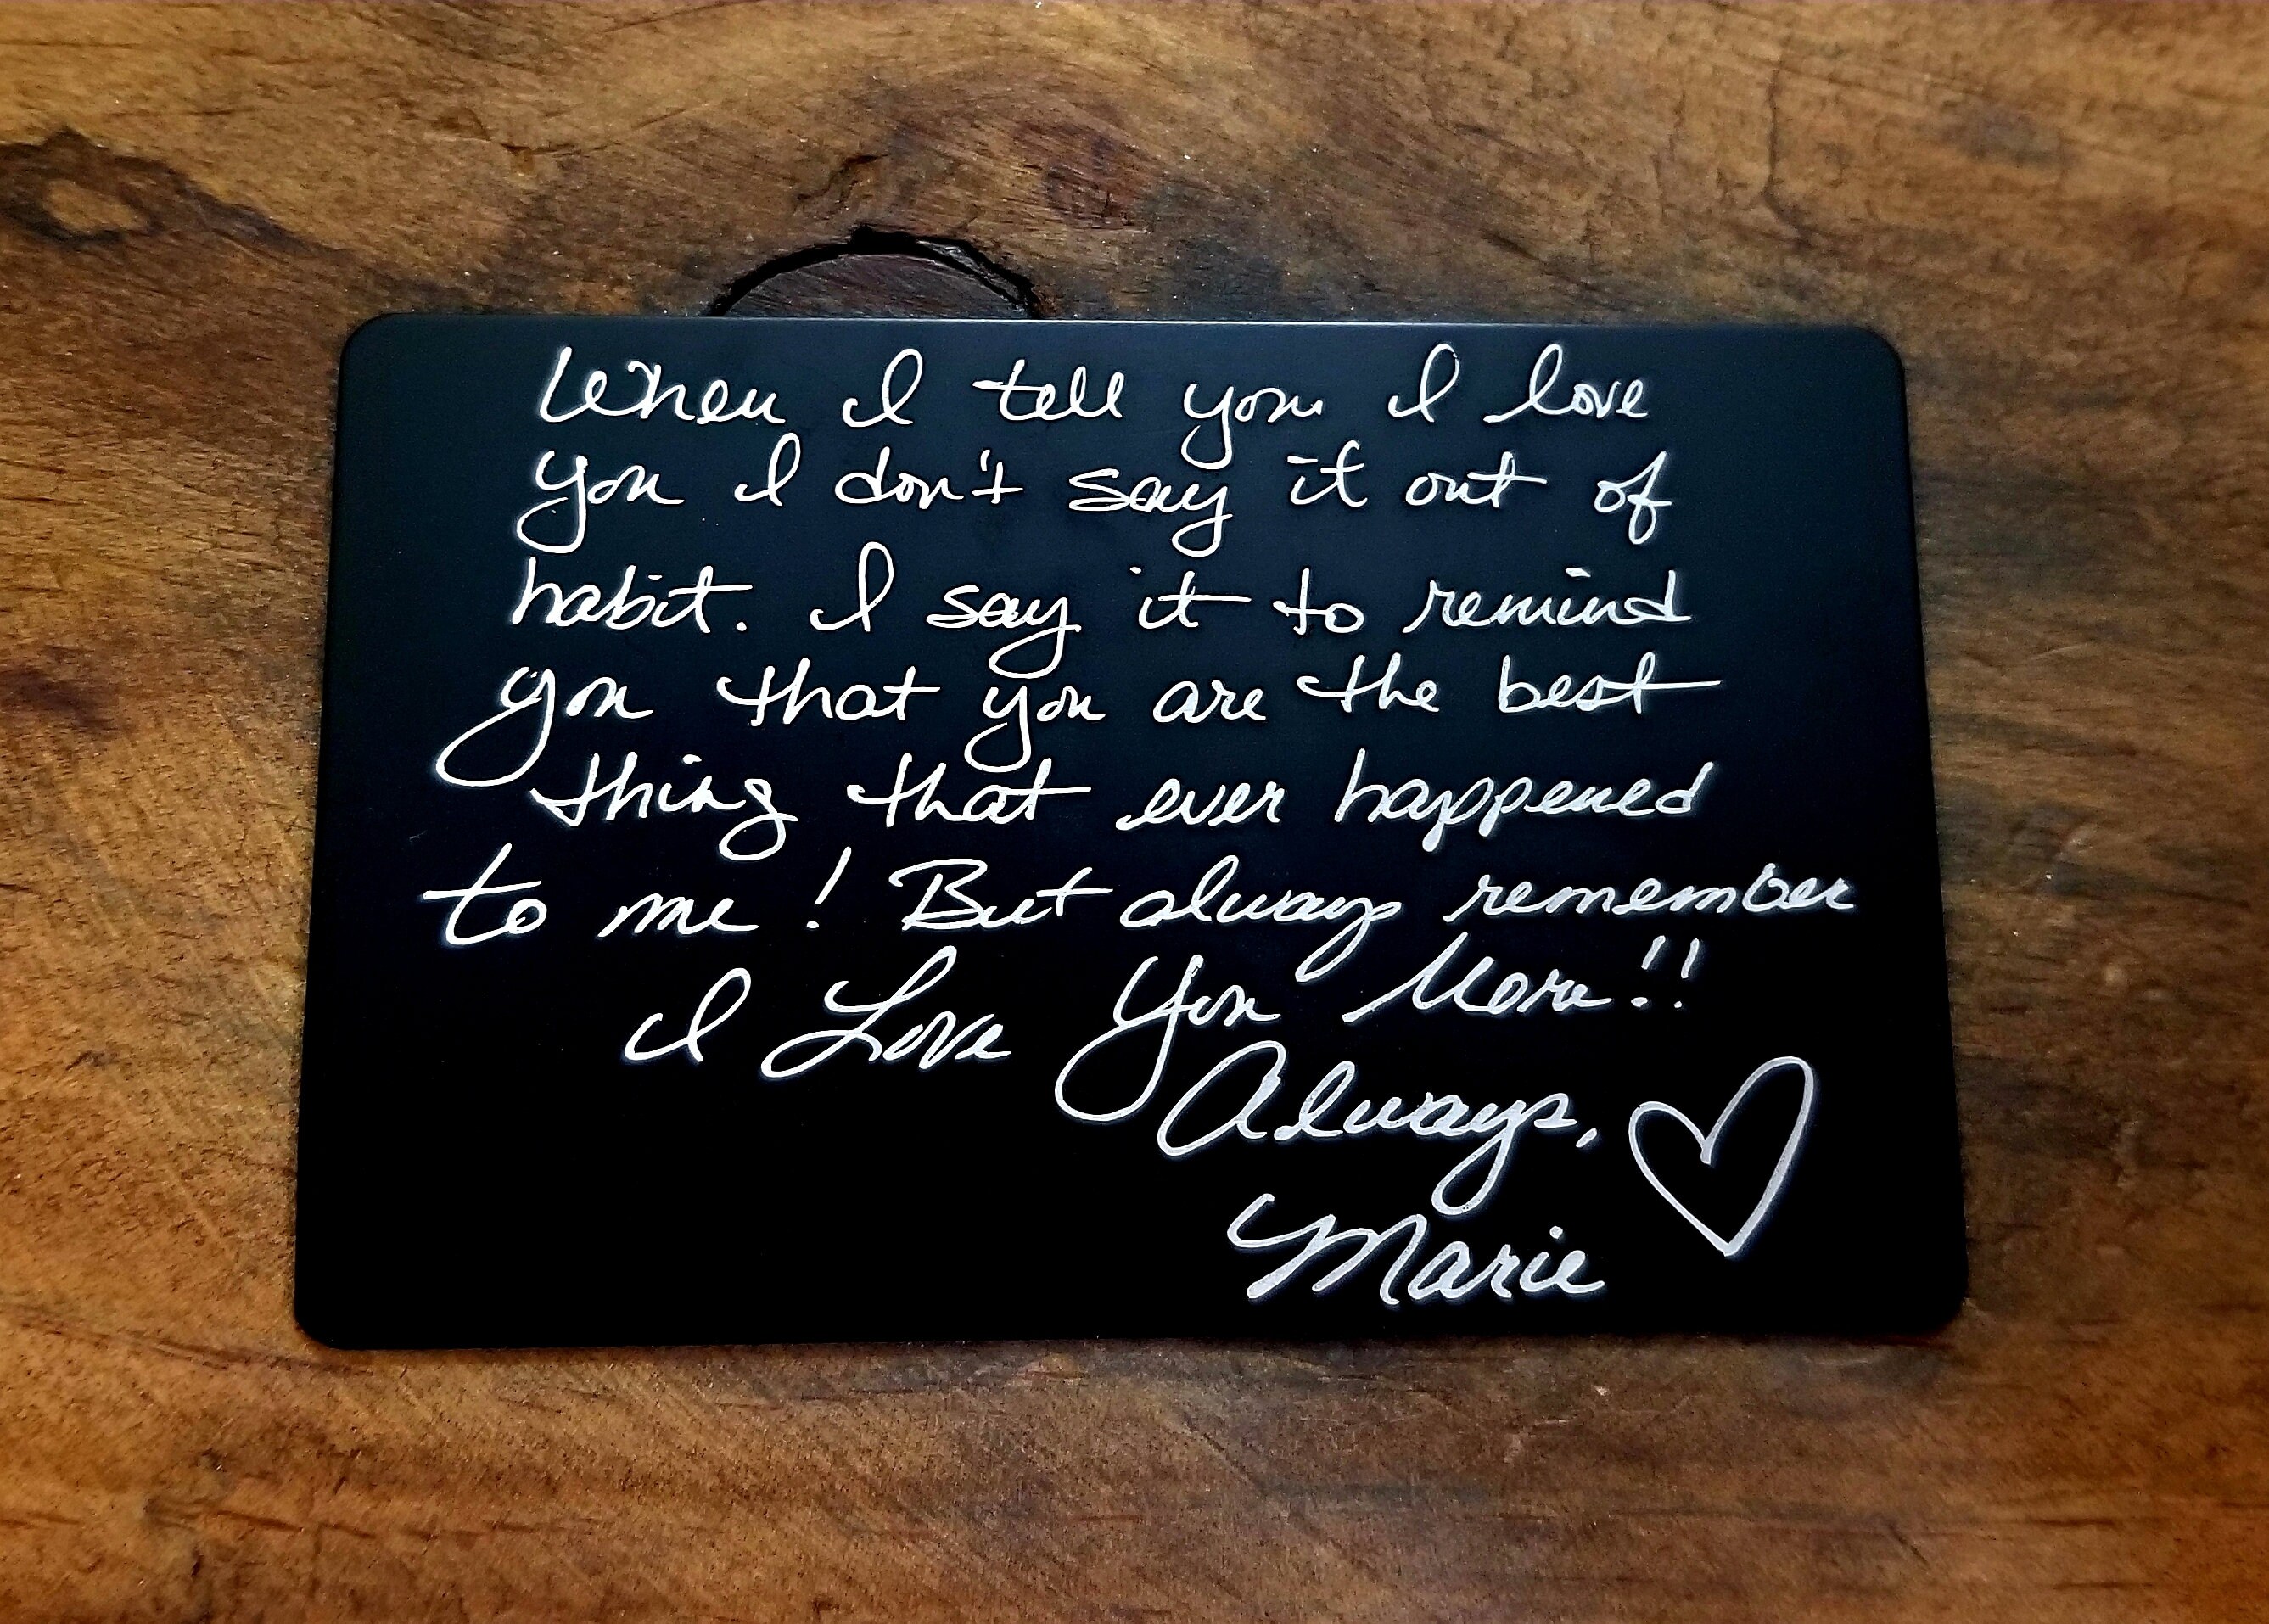 When I tell you I love
you I don't say it out of
habit. I say it to remind
you that you are the best
thing that ever happened
to me! But always remember
I Love You More!!
Always,
Marie